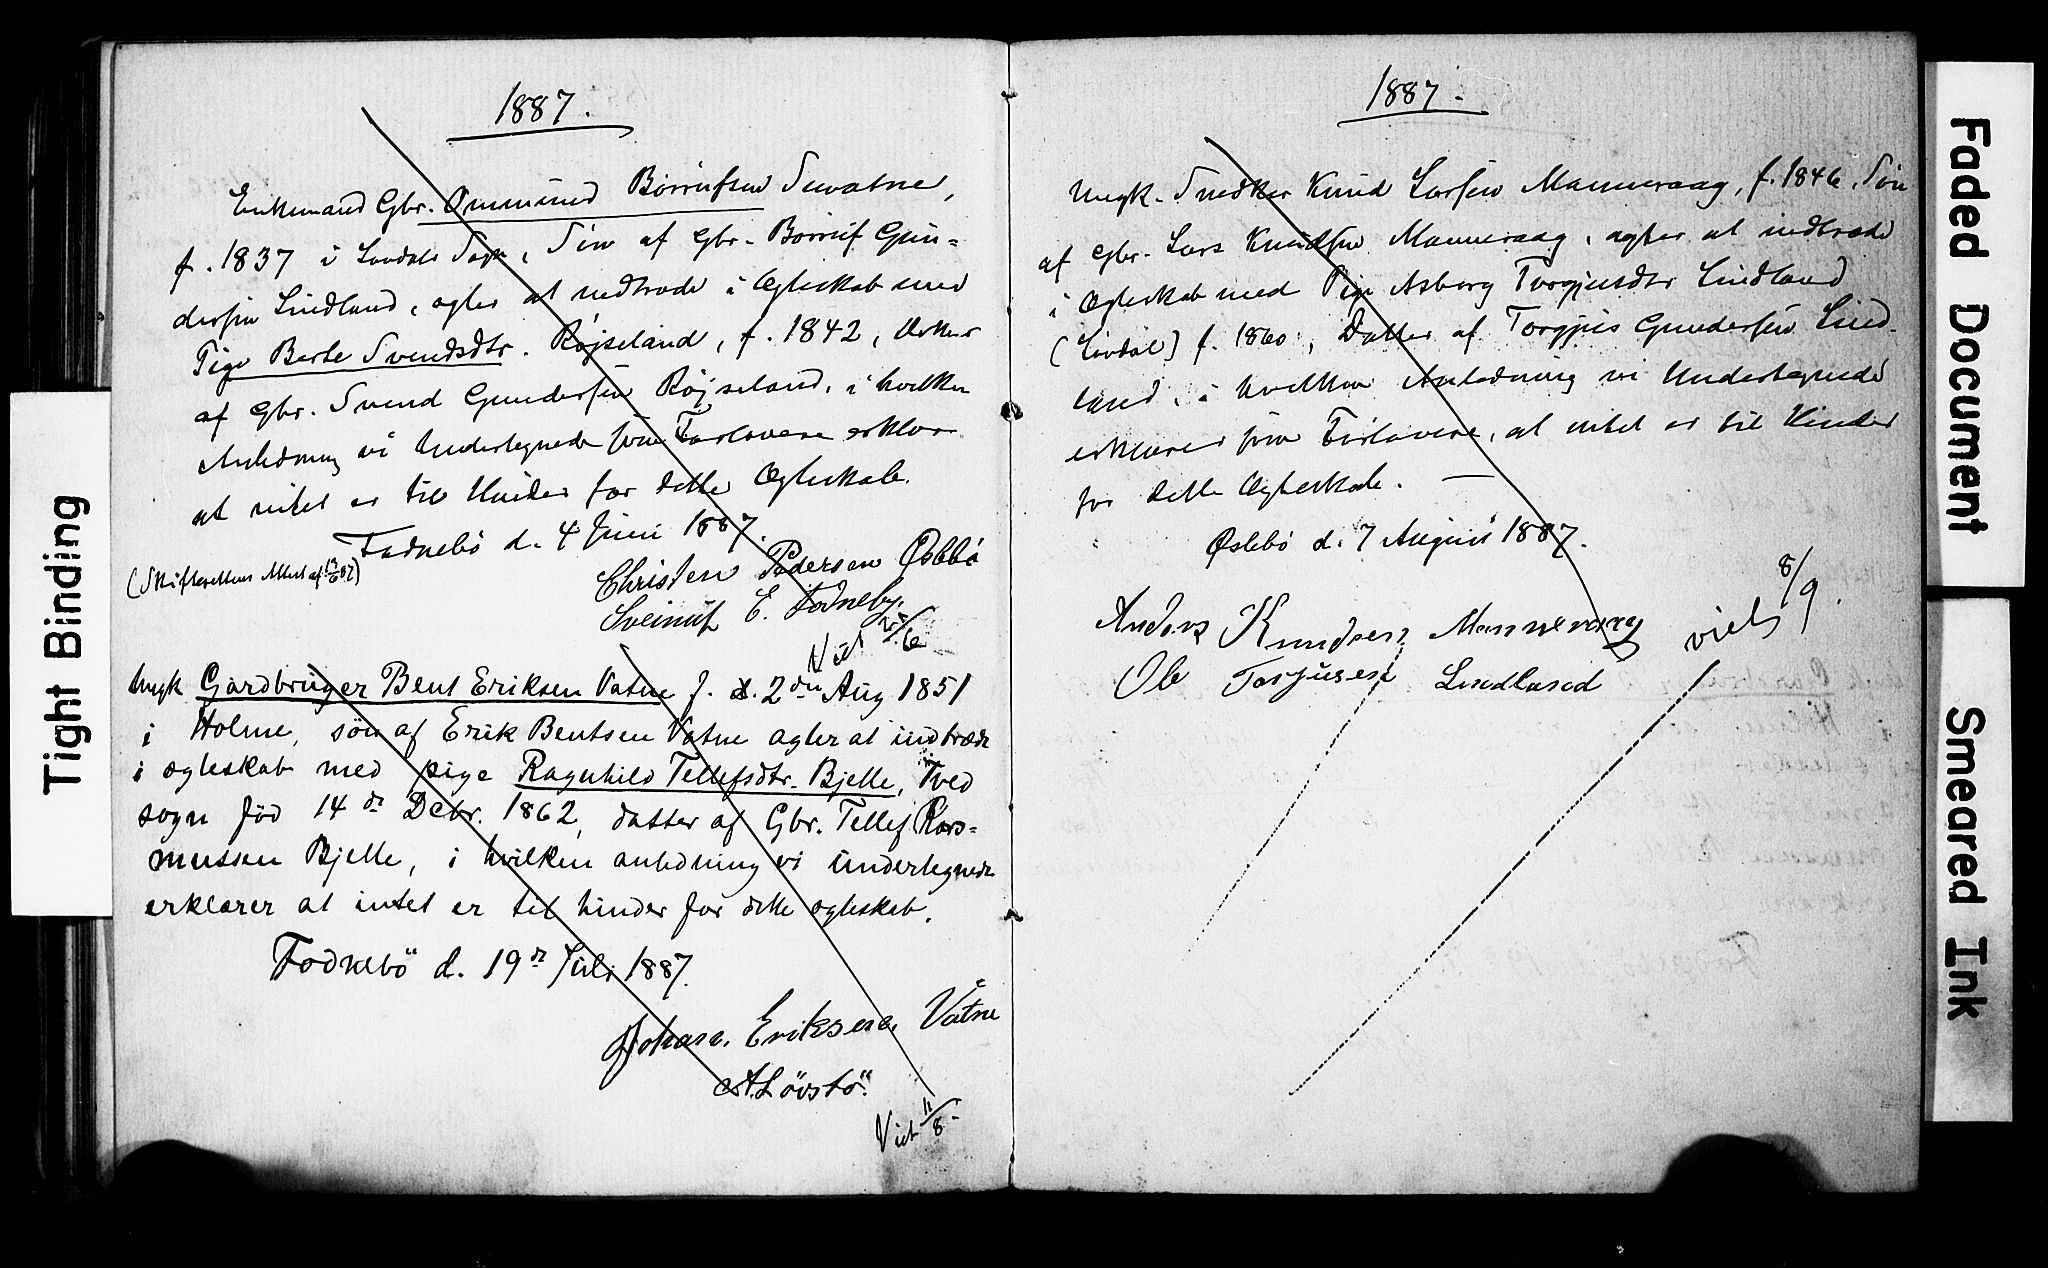 1887.
Enkemand Gbr. Ommund Börrufsen Suvatne,
f. 1837 i Laudals Sogn, Sön af Gbr. Börruf Gun-
dersen Lindland, agter at indtræde i Ægteskab med
Pige Berte Svendsdtr. Röjseland, f. 1842, Datter
af Gbr. Svend Gundersen Röjseland, i hvilken
Anledning vi Undertegnede som Forlovere erklærer
at intet er til Hinder for dette Ægteskab.
Fodnebö d. 4 Juni 1887.
(Skifterettens Attest af 13/6 87)
Christen Pedersen Øslebö
Sveinuf E. Fodneby.
Viet 25/6
Ungk Gårdbruger Bent Eriksen Vatne f. d. 2den Aug 1851
i Holme, sön af Erik Bentsen Vatne agter at indtræde
i ægteskab med pige Ragnhild Tellefsdtr. Bjelle, Tved
sogn föd 14de Decbr. 1862, datter af Gbr. Tellef Ras-
mussen Bjelle, i hvilken anledning vi undertegnede
erklærer at intet er til hinder for dette ægteskab.
Fodnebö d. 19de Juli 1887.
Johan. Eriksen. Vatne
A. Lövstö
Viet 11/8.
1887.
Ungk. Snedker Knud Larsen Manneraag, f. 1846, Sön
af Gbr. Lars Knudsen Manneraag, agter at indtræde
i Ægteskab med Pige Asborg Torgjusdtr Lindland
(Laudal) f. 1860, Datter af Torgjus Gundersen Lind-
land, i hvilken Anledning vi Undertegnede
erklærer som Forlovere, at intet er til Hinder
for dette Ægteskab. —
Øslebö d. 7 August 1887.
Anders Knudsen Mannerag
Ole Torjusen Lindland
viet 8/9.
Tight Binding
Faded Document
Smeared Ink